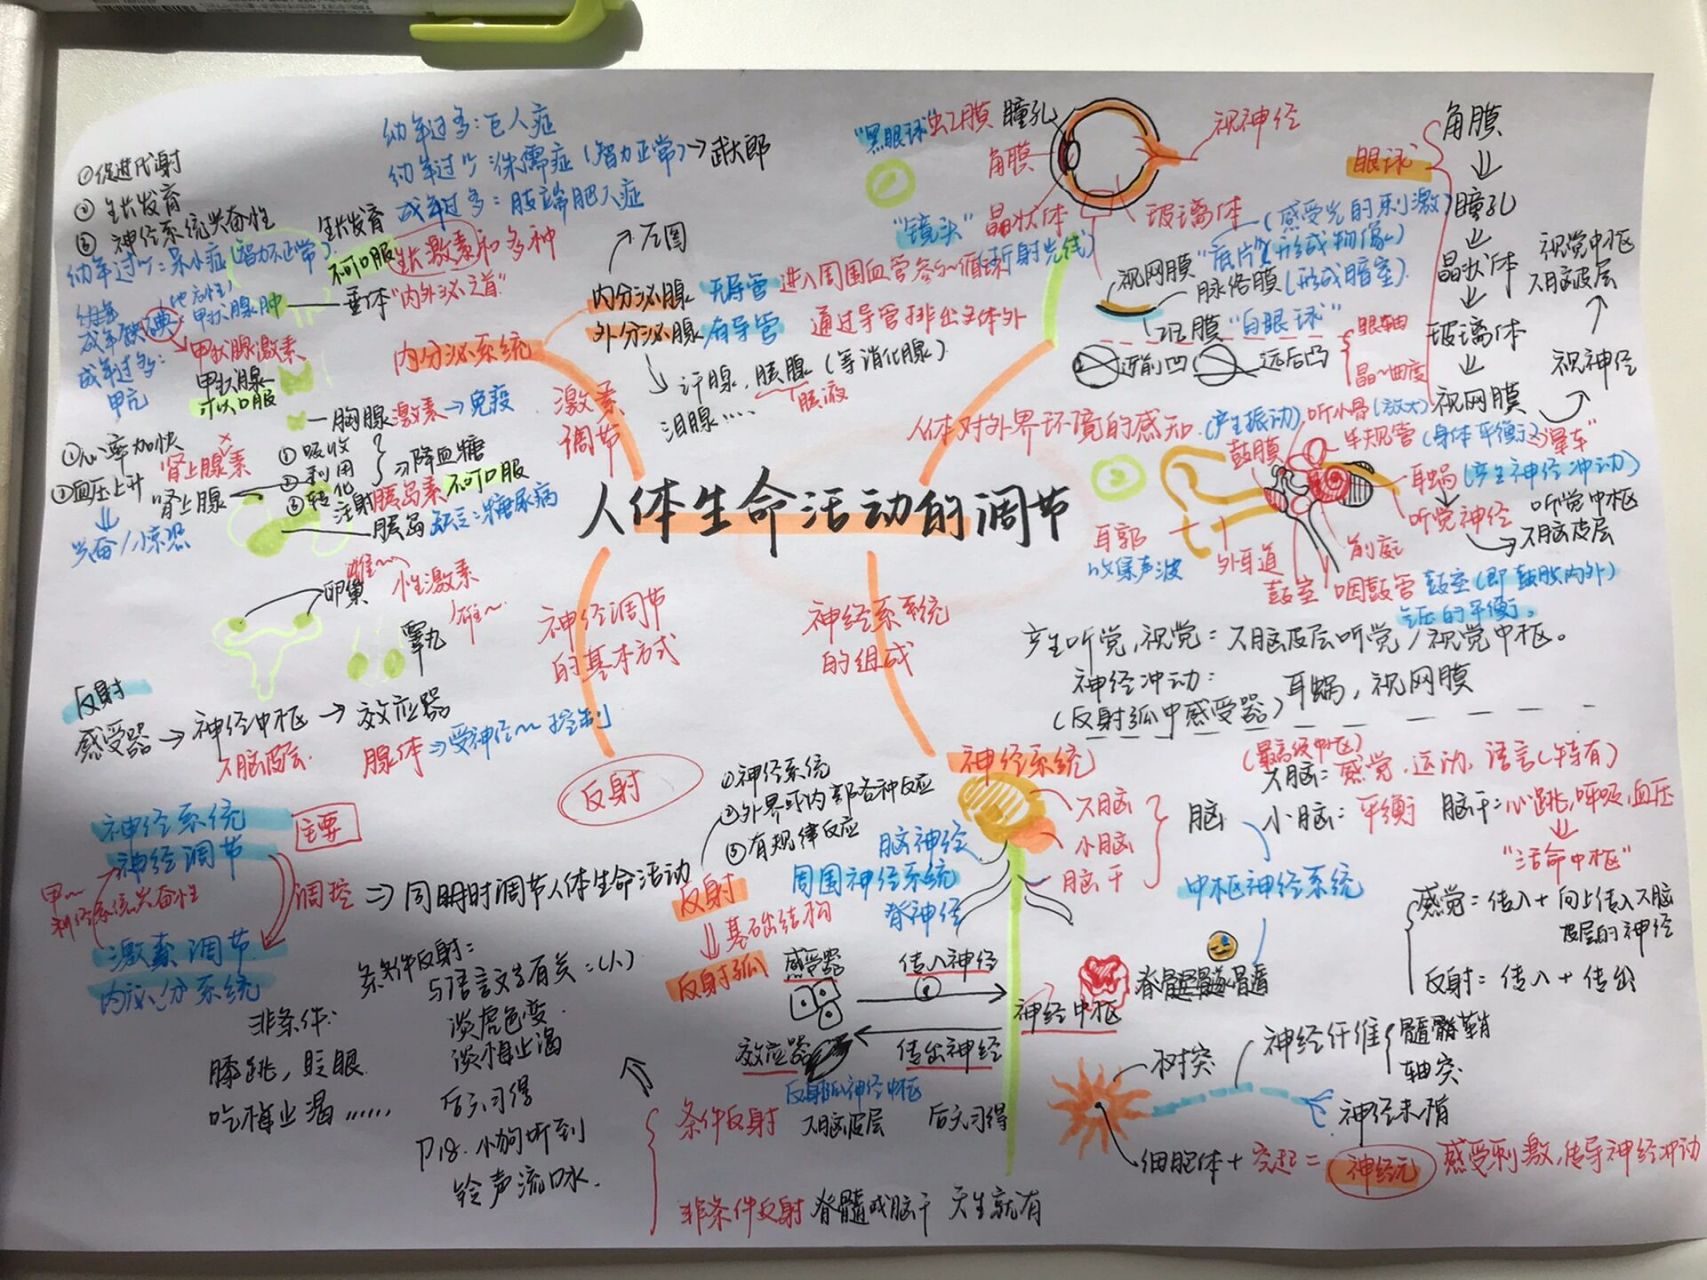 人体生命活动的调节
激素
调节
内分泌系统
内分泌腺 无导管 进入周围血管参与循环
→左图
外分泌腺 有导管 通过导管排出文体外
汗腺，胰腺（等消化腺）
胰液
泪腺……
幼年过多：巨人症
幼年过少：侏儒症（智力正常）→武大郎
成年过多：肢端肥人症
生长发育
不可口服 生长激素和多种
垂体"内外泌之首"
①促进代谢
②生长发育
③神经系统兴奋性
幼年过少：呆小症（智力不正常）
成年缺碘
甲状腺肿
甲状腺激素
成年过多：
甲亢
甲状腺
可以口服
胸腺激素→免疫
①心率加快
②血压上升
兴奋/惊恐
肾上腺素
肾上腺
①吸收
②利用
③转化
}⇒降血糖
注射胰岛素 不可口服
胰岛 缺乏：糖尿病
卵巢
雌~
性激素
雄~
睾丸
人体对外界环境的感知
①
"黑眼球"虹膜 瞳孔
角膜
视神经
"镜头"晶状体
(折射光线)
玻璃体
(感受光的刺激)
视网膜"底片"（形成物像）
脉络膜（形成暗室）
巩膜"白眼球"
近前凹 远后凸
眼轴
晶~曲度
眼球
角膜
⇓
瞳孔
⇓
晶状体
⇓
玻璃体
⇓
视网膜
视神经
视觉中枢
大脑皮层
②
(产生振动)
鼓膜
听小骨(放大)
半规管（身体平衡）"晕车"
耳蜗（产生神经冲动）
听觉神经
听觉中枢
大脑皮层
耳郭
收集声波
外耳道
前庭
鼓室
咽鼓管 鼓室（即鼓膜内外）
气压的平衡。
产生听觉，视觉：大脑皮层听觉/视觉中枢。
神经冲动：
（反射弧中感受器）耳蜗，视网膜
神经调节
的基本方式
反射
反射
感受器→神经中枢→效应器
大脑皮层
腺体⇒受神经~控制
神经系统
神经调节
主要
调控
甲~
神经系统兴奋性
激素调节
内泌分系统
⇒同时调节人体生命活动
①神经系统
②外界或内部各种反应
③有规律反应
反射
⇓基础结构
反射弧
感受器
传入神经
神经中枢
效应器
传出神经
反射弧神经中枢
条件反射 大脑皮层 后天习得
非条件反射 脊髓或脑干 天生就有
条件反射：
与语言文字有关：(人)
谈虎色变
谈梅止渴
后天习得
P18. 小狗听到
铃声流口水.
非条件：
膝跳，眨眼
吃梅止渴……
神经系统
的组成
神经系统
大脑
小脑
脑干
脑
脑神经
周围神经系统
脊神经
中枢神经系统
脊髓
（最高级中枢）
大脑：感觉，运动，语言（特有）
小脑：平衡 脑干：心跳，呼吸，血压
"活命中枢"
感觉：传入+向上传入大脑
皮层的神经
反射：传入+传出
树突
神经纤维
髓鞘
轴突
神经末梢
细胞体+突起=神经元 感受刺激，传导神经冲动